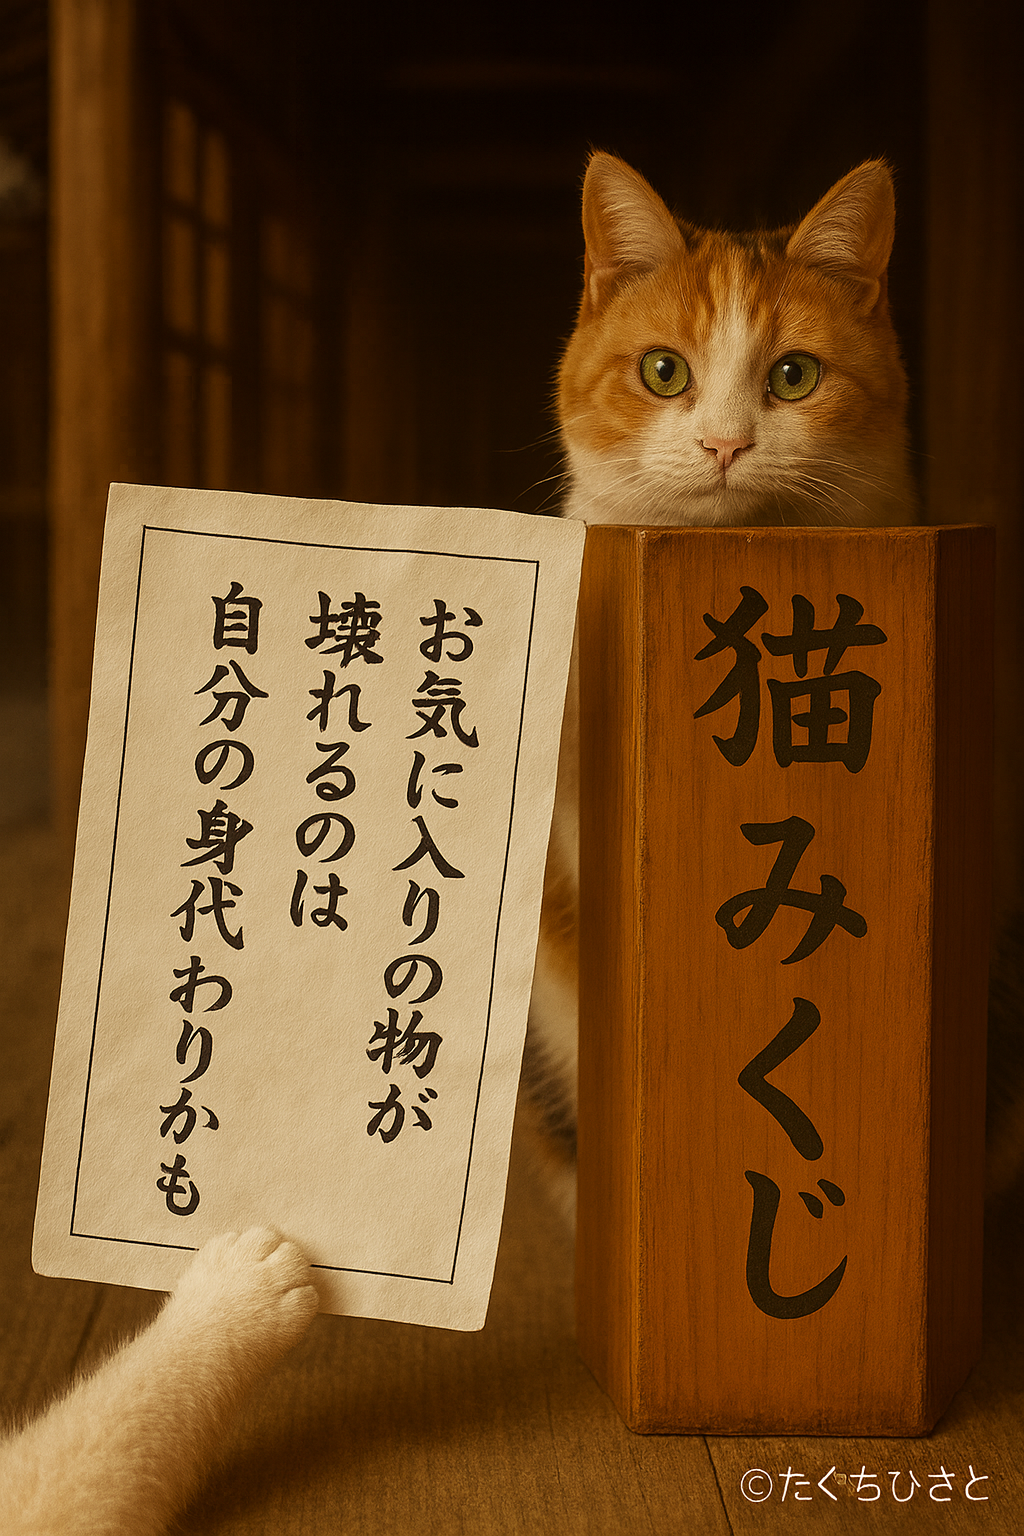 お気に入りの物が
壊れるのは
自分の身代わりかも
猫みくじ
©たくちひさと